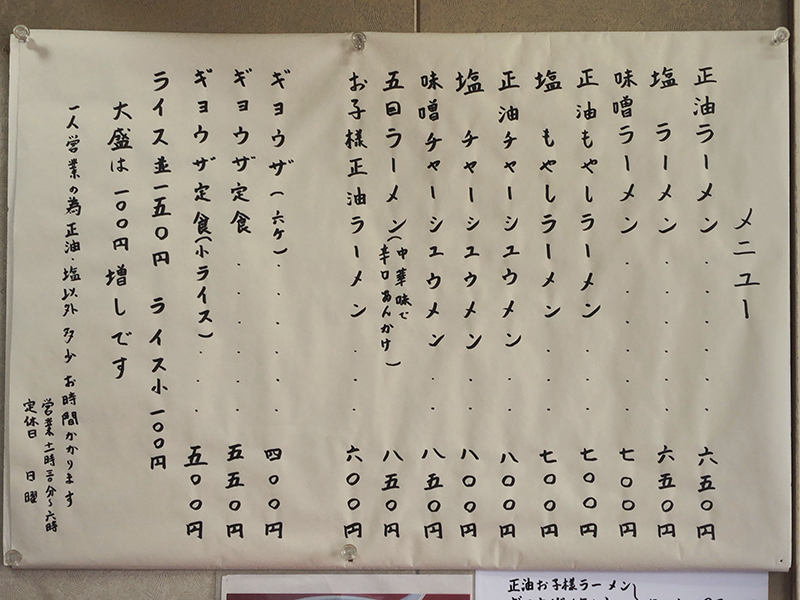 メニュー
正油ラーメン・・・・・六五〇円
塩 ラーメン・・・・・六五〇円
味噌ラーメン・・・・・七〇〇円
正油もやしラーメン・・・七〇〇円
塩 もやしラーメン・・・七〇〇円
正油チャーシュウメン・・八〇〇円
塩 チャーシュウメン・・八〇〇円
味噌チャーシュウメン・・八五〇円
五目ラーメン(中華味で辛口あんかけ)・・八五〇円
お子様正油ラーメン・・・六〇〇円
ギョウザ(六ケ)・・・・・四〇〇円
ギョウザ定食・・・・・・五五〇円
ギョウザ定食(小ライス)・・・五〇〇円
ライス並一五〇円 ライス小一〇〇円
大盛は一〇〇円増しです
一人営業の為正油・塩以外 多少お時間かかります
営業十一時三〇分〜六時
定休日 日曜
正油お子様ラーメン